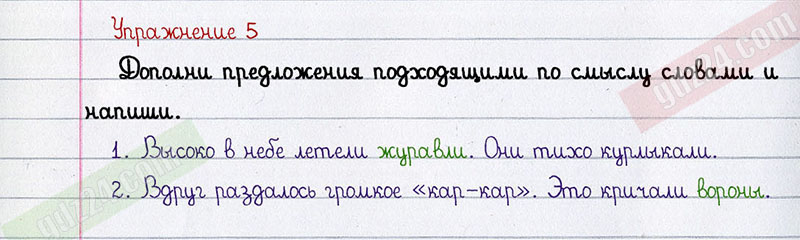 Упражнение 5
Дополни предложения подходящими по смыслу словами и
напиши.
1. Высоко в небе летели журавли. Они тихо курлыкали.
2. Вдруг раздалось громкое «кар-кар». Это кричали вороны.
gdz24.com
gdz24.com